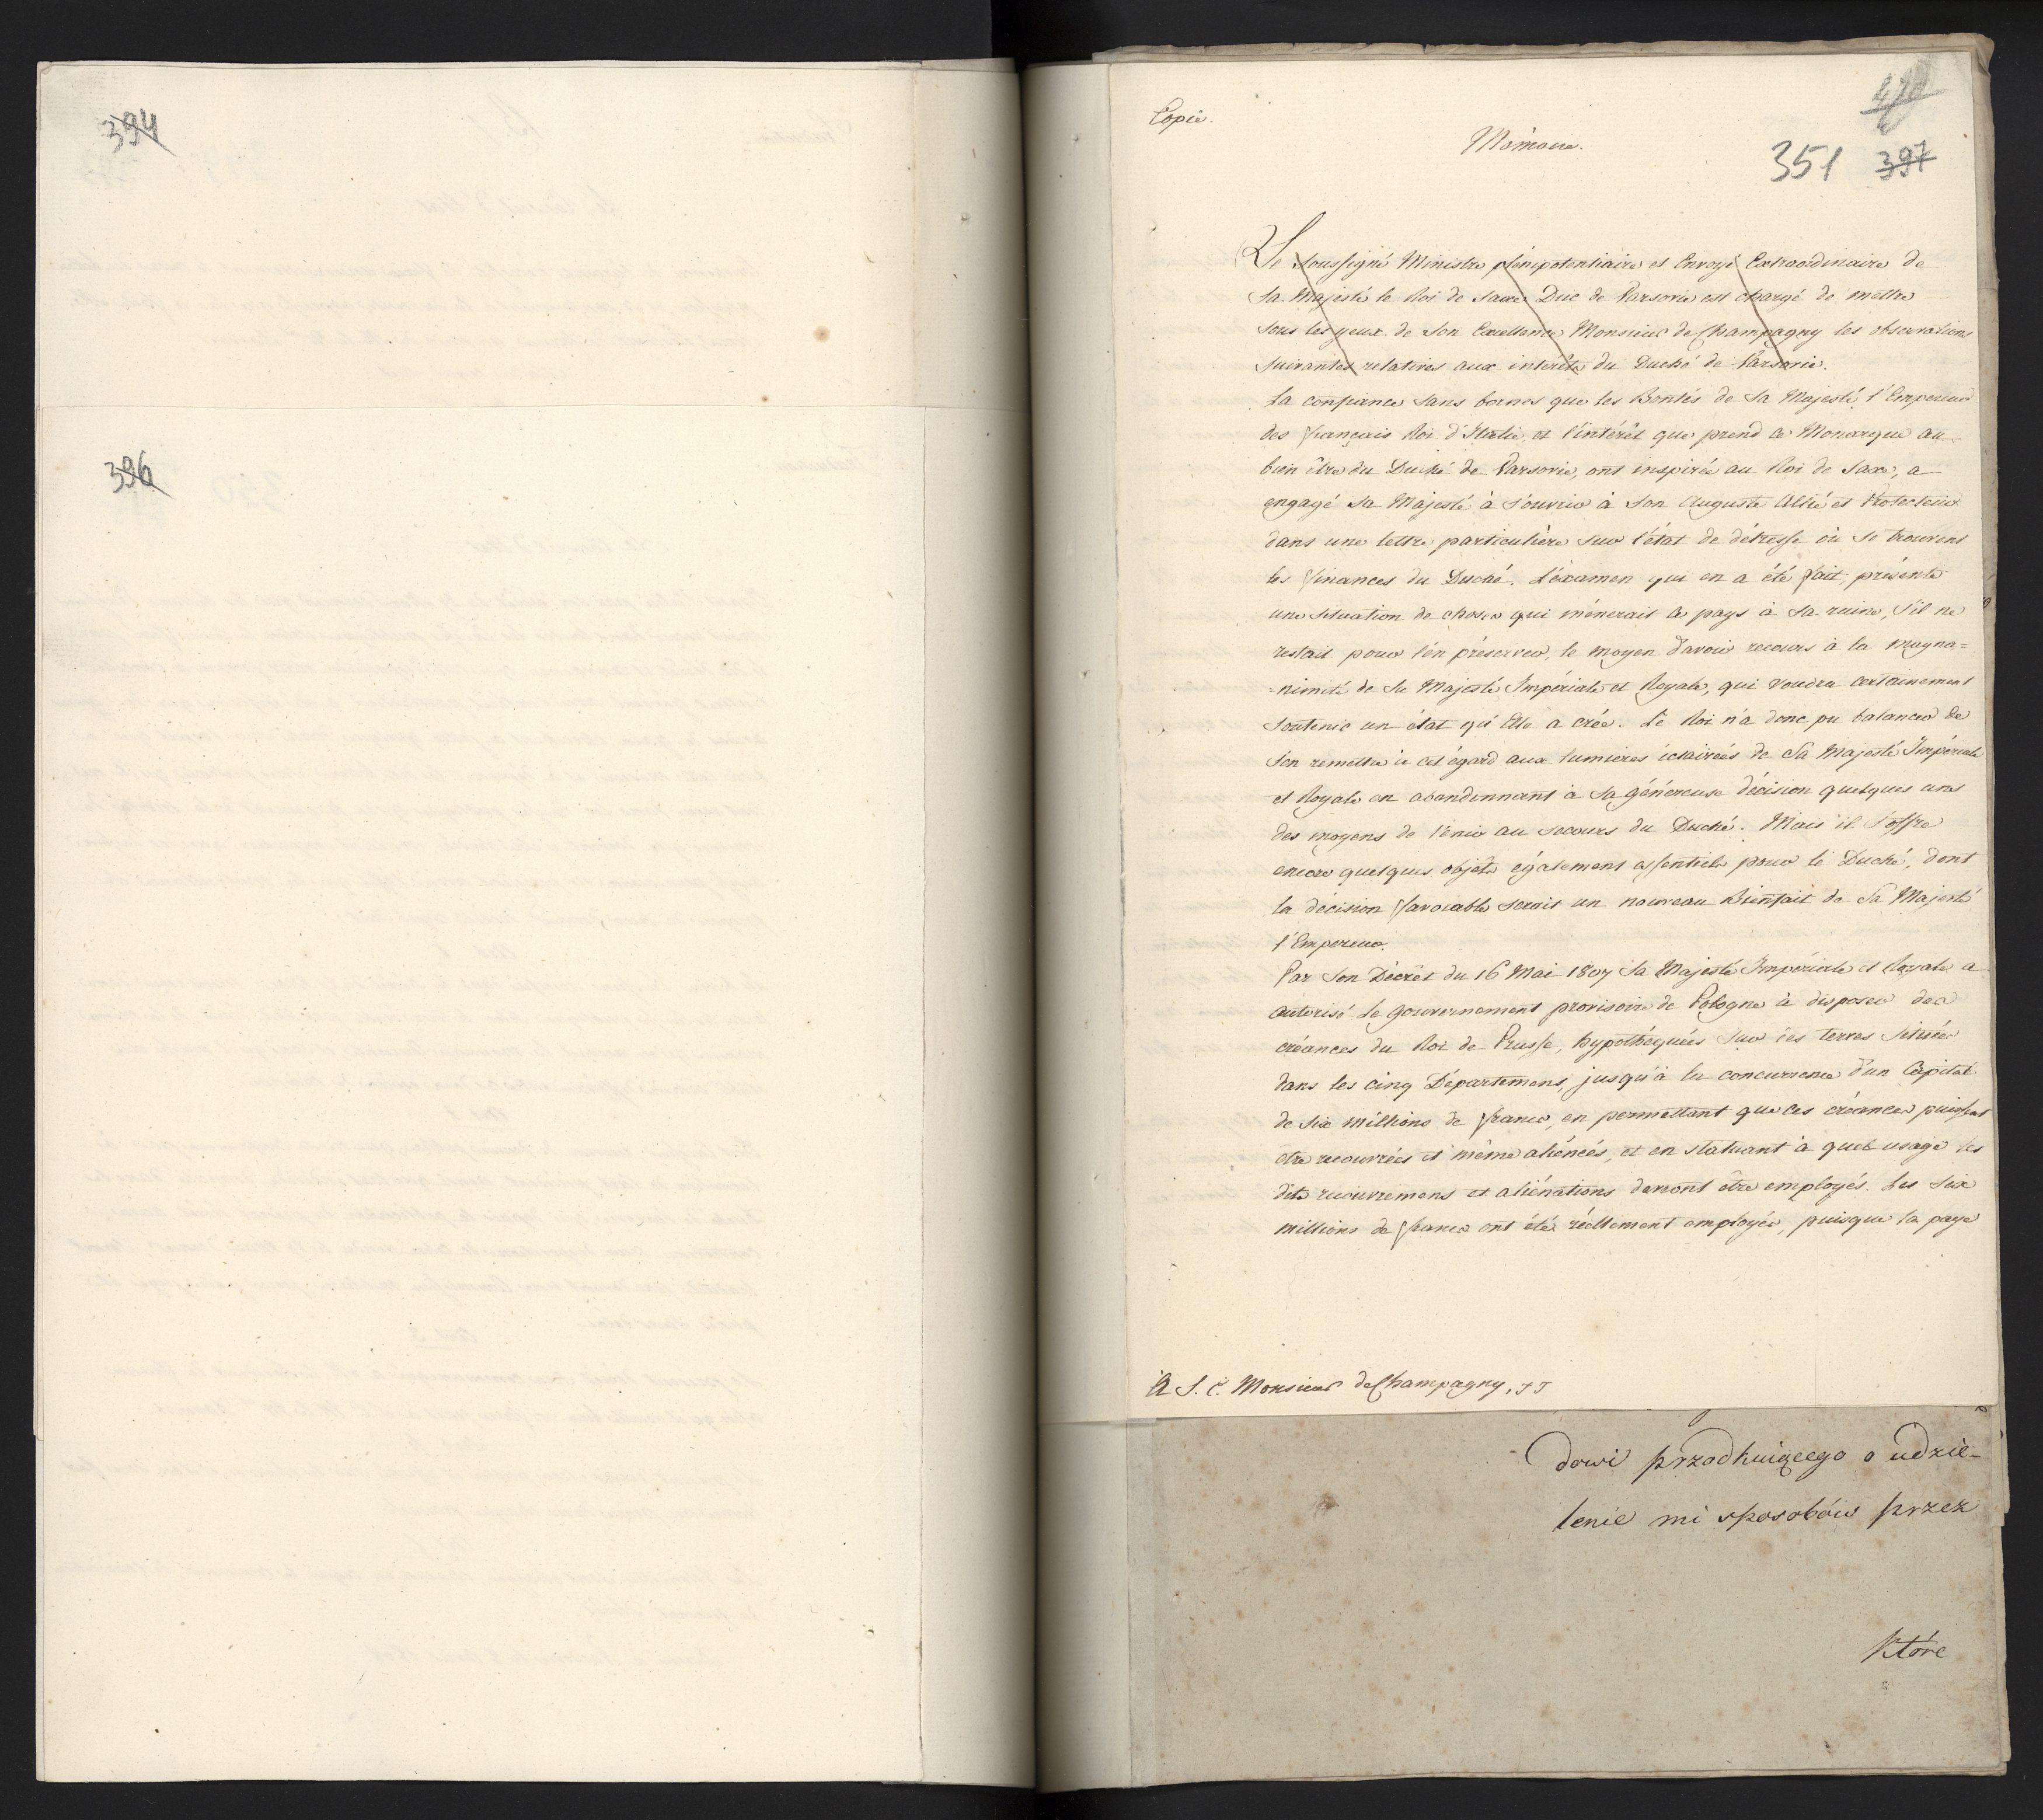 394
396
Copie.
Mémoire.
351 397
Le soussigné Ministre plénipotentiaire et Envoyé Extraordinaire de
Sa Majesté le Roi de Saxe Duc de Varsovie est chargé de mettre
sous les yeux de Son Excellence Monsieur de Champagny les observations
suivantes relatives aux intérêts du Duché de Varsovie.
La confiance sans bornes que les Bontés de Sa Majesté l'Empereur
des français Roi d'Italie, et l'intérêt que prend ce Monarque au
bien être du Duché de Varsovie, ont inspirée au Roi de Saxe, a
engagé Sa Majesté à s'ouvrir à Son Auguste Allié et Protecteur
dans une lettre particulière sur l'état de détresse où se trouvent
les finances du Duché. L'éxamen qui en a été fait, présente
une situation de choses qui mènerait ce pays à sa ruine, s'il ne
restait pour l'en préserver, le moyen d'avoir recours à la magna=
=nimité de Sa Majesté Impériale et Royale, qui voudra certainement
soutenir un état qu'Elle a créé. Le Roi n'a donc pu balancer de
s'en remettre à cet égard aux lumieres éclairées de Sa Majesté Impériale
et Royale en abandonnant à Sa généreuse décision quelques uns
des moyens de venir au secours du Duché. Mais il s'offre
encore quelques objets également essentiels pour le Duché, dont
la decision favorable serait un nouveau Bienfait de Sa Majesté
l'Empereur.
Par Son Décrèt du 16 Mai 1807 Sa Majesté Impériale et Royale a
autorisé le gouvernement provisoire de Pologne à disposer des
créances du Roi de Prusse, hypothéquées sur les terres situées
dans les cinq Départemens, jusqu'à la concurrence d'un Capital
de six millions de francs, en permettant que ces créances puissent
être recouvrées et même aliénées, et en statuant à quel usage les
dits recouvremens et aliénations devront être employés. Les six
millions de francs ont été réellement employés, puisque la paye
A S. E. Monsieur de Champagny,
dowi przodkuiącego o udzie-
lenie mi sposobów przez
które